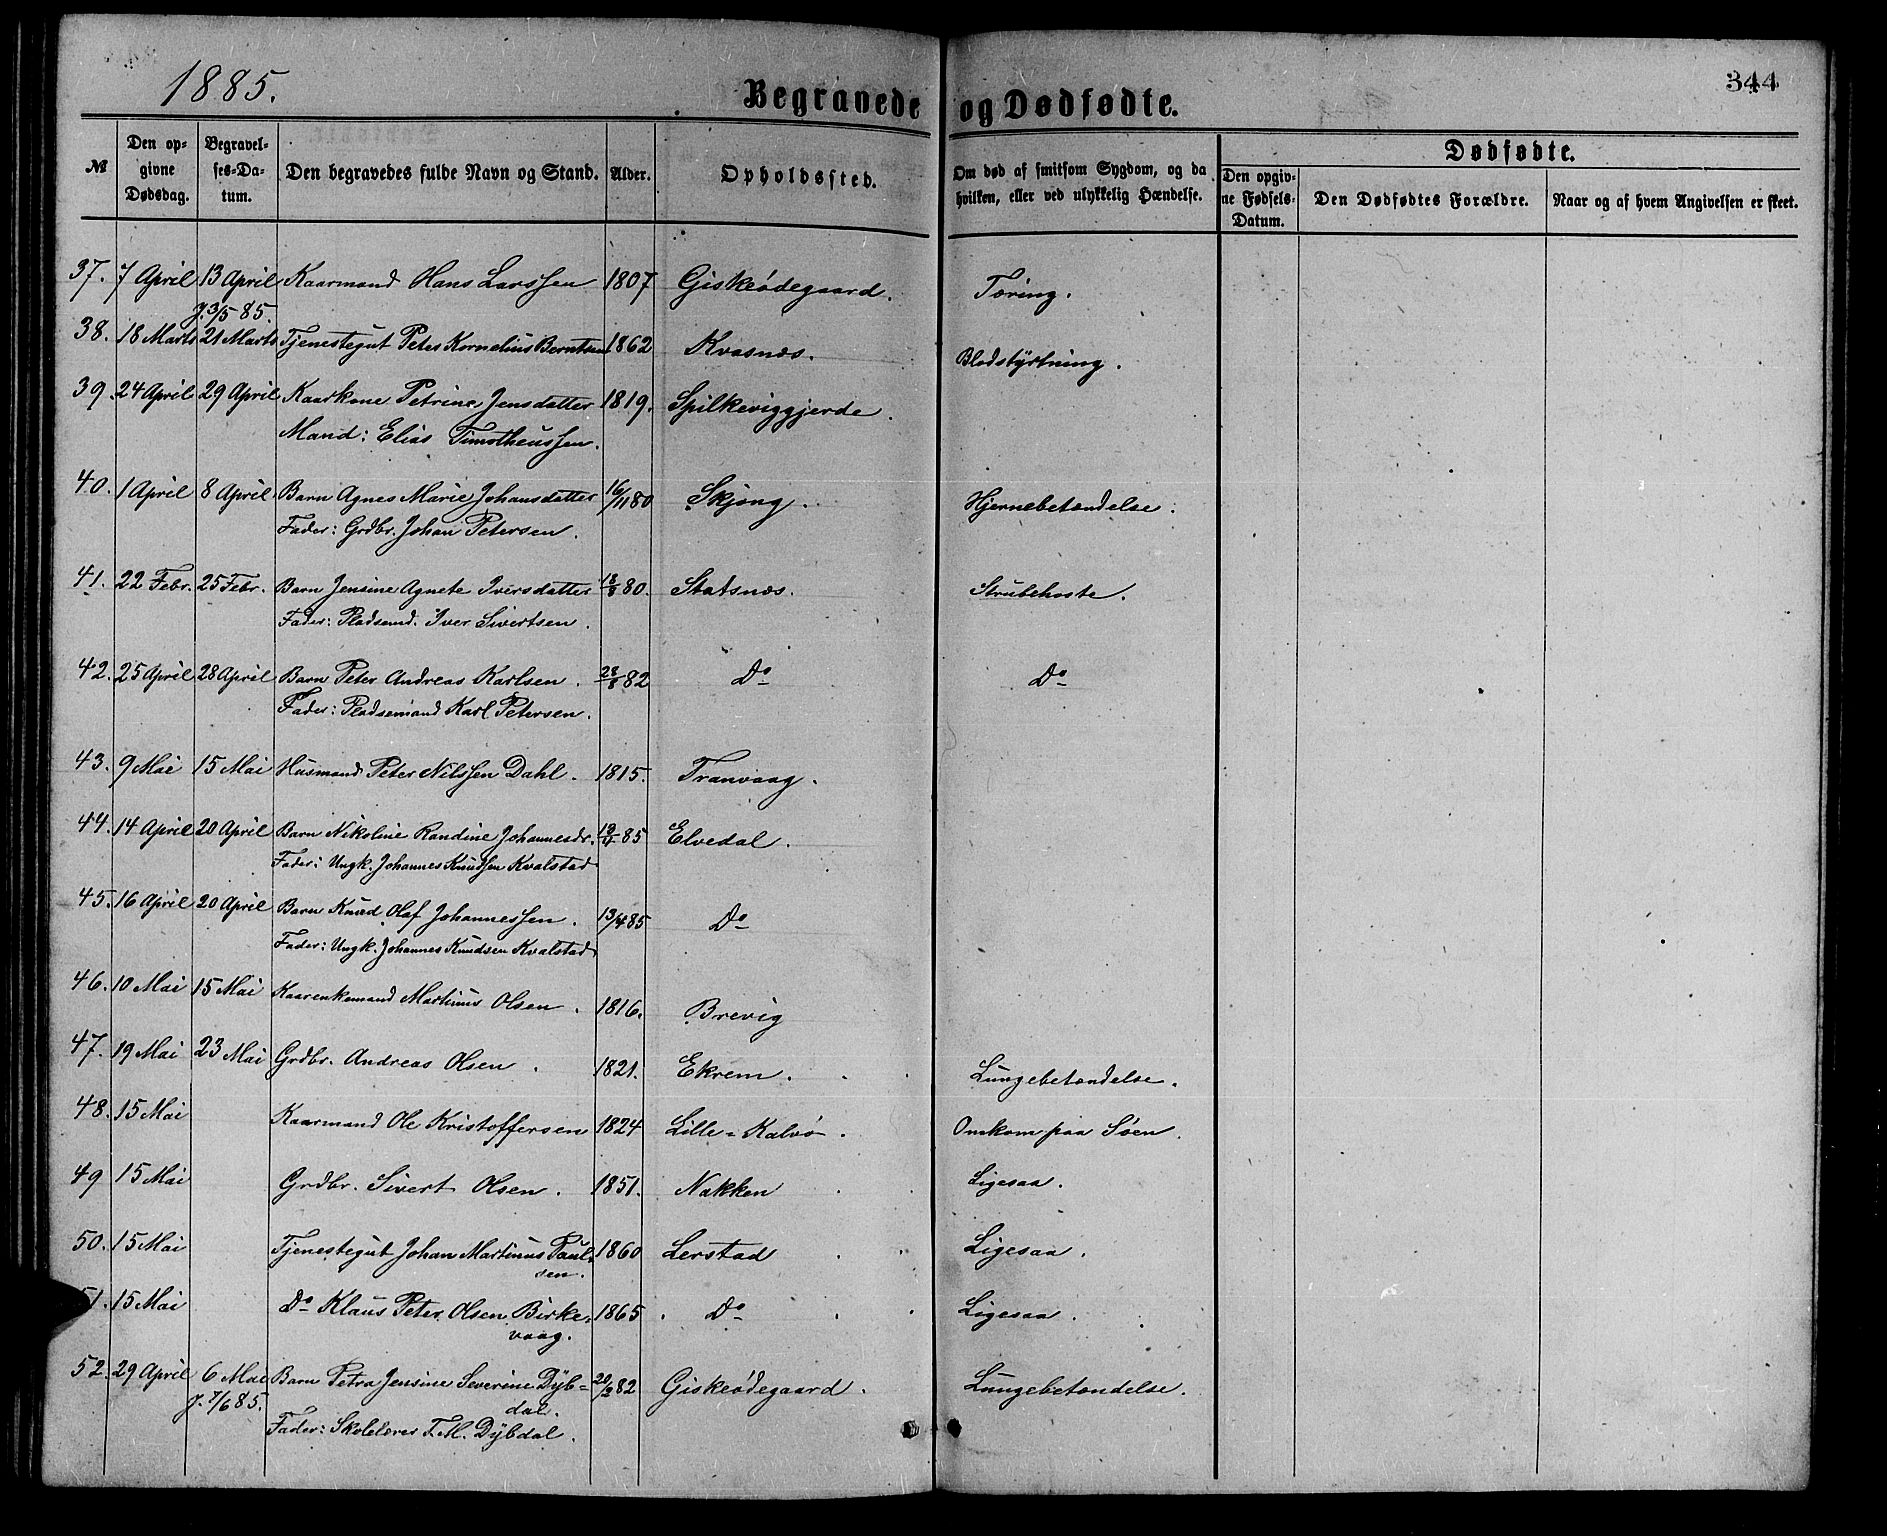 1885.
Begravede og Dødfødte.
344
№
Den opgivne Dødsdag.
Begravelses-Datum.
Den begravedes fulde Navn og Stand.
Alder.
Opholdssted.
Om død af smitsom Sygdom, og da hvilken, eller ved ulykkelig Hændelse.
Dødfødte.
Den opgivne Fødsels-Datum.
Den Dødfødtes Forældre.
Naar og af hvem Angivelsen er skeet.
37. 7 April 13 April Kaarmand Hans Larssen 1807 Giskeødegaard. Tæring.
J. 3/5 85.
38. 18 Marts 21 Marts Tjenestegut Peter Kornelius Berntsen 1862 Kvasnæs. Blodstyrtning.
39. 24 April 29 April Kaarkone Petrine Jensdatter 1819. Spilkeviggjerde.
Mand: Elias Timotheussen.
40. 1 April 8 April. Barn Agnes Marie Johansdatter 16/11 80 Skjong. Hjernebetændelse.
Fader: Grdbr. Johan Petersen.
41. 22 Febr. 25 Febr. Barn Jensine Agnete Iversdatter 18/8 80. Statsnæs. Strubehoste.
Fader: Pladsemd. Iver Sivertsen.
42. 25 April 28 April Barn Peter Andreas Karlsen. 28/8 82 Do Do
Fader: Pladsemand Karl Petersen.
43. 9 Mai 15 Mai Husmand Peter Nilssen Dahl. 1815. Tranvaag.
44. 14 April 20 April Barn Nikoline Randine Johannesdr. 13/4 85 Elvedal.
Fader: Ungk. Johannes Knudsen Kvalstad
45. 16 April 20 April Barn Knud Olaf Johannessen. 13/4 85 Do
Fader: Ungk. Johannes Knudsen Kvalstad
46. 10 Mai 15 Mai Kaarenkemand Martinus Olsen. 1816. Brevig
47. 19 Mai 23 Mai Grdbr. Andreas Olsen. 1821. Ekrem. Lungebetændelse.
48. 15 Mai Kaarmand Ole Kristoffersen 1824 Lille-Kalvø. Omkom paa Søen.
49 15 Mai Grdbr. Sivert Olsen. 1851. Nakken Ligesaa.
50. 15 Mai Tjenestegut Johan Martinus Paul- 1860 Lerstad Ligesaa.
sen.
51. 15 Mai Do Klaus Peter Olsen Birke- 1865 Do Ligesaa.
vaag.
52. 29 April 6 Mai Barn Petra Jensine Severine Dÿb- 20/2 82 Giskeødegaard. Lungebetændelse.
J. 7/6 85. dal.
Fader: Skolelærer T. M. Dÿbdal.